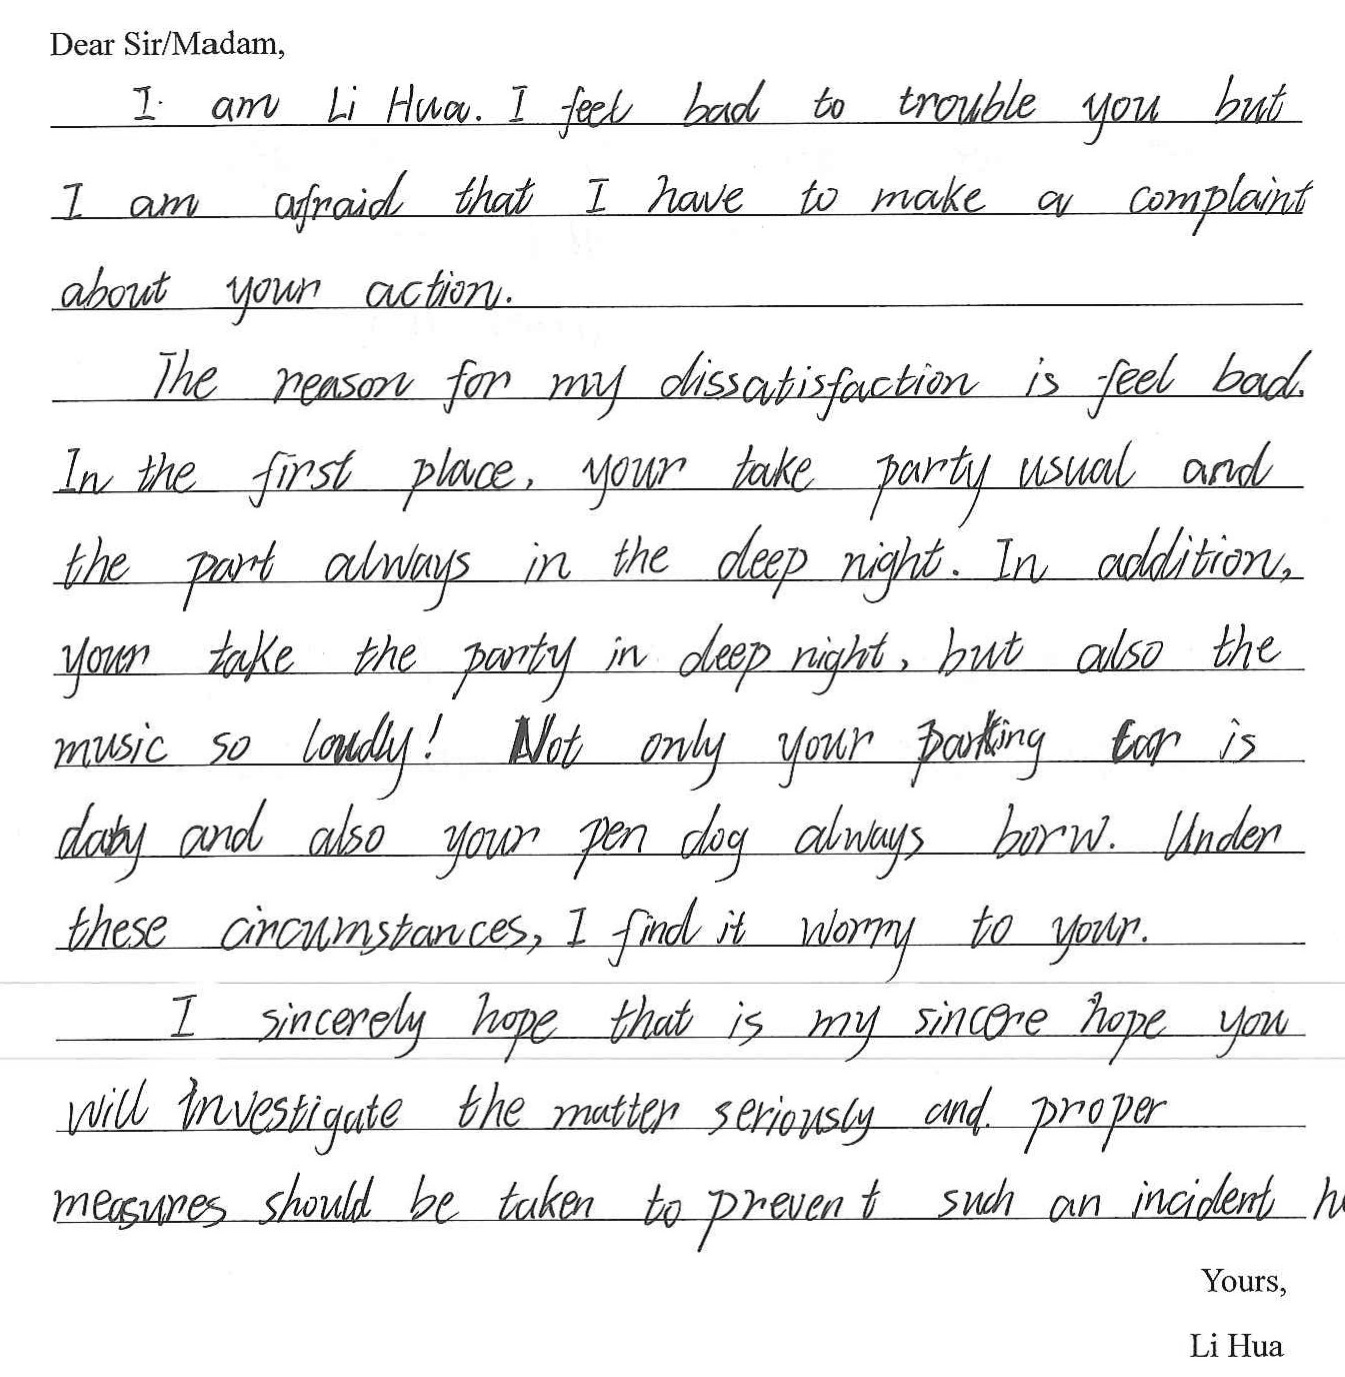 Dear Sir/Madam,
I am Li Hua. I feel bad to trouble you but
I am afraid that I have to make a complaint
about your action.
The reason for my dissatisfaction is feel bad.
In the first place, your take party usual and
the part always in the deep night. In addition,
your take the party in deep night, but also the
music so loudly! Not only your parking car is
and also your pen dog always borw. Under
these circumstances, I find it worry to your.
I sincerely hope that is my sincere hope you
will investigate the matter seriously and proper
measures should be taken to prevent such an incident
Yours,
Li Hua